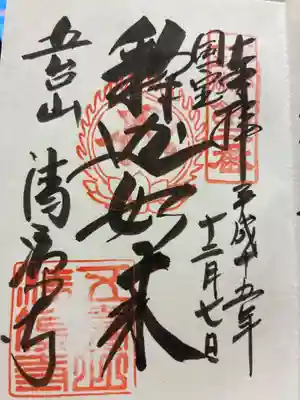 奉拝 平成十五年
十二月七日
国宝
釈迦如来
五台山 清凉寺